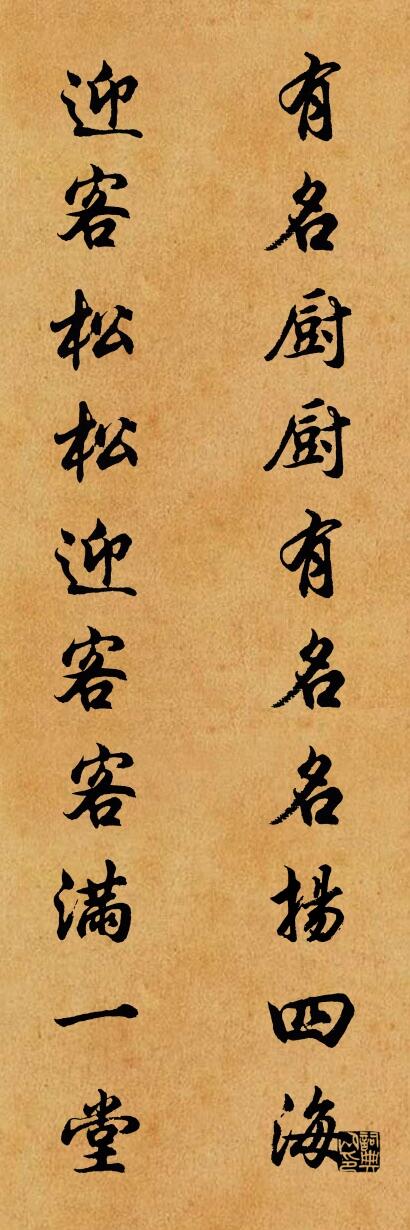 有名厨厨有名名揚四海
迎客松松迎客客滿一堂